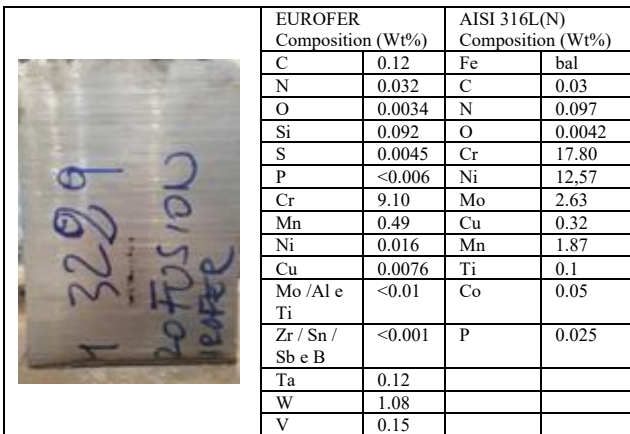 3229
EUROFER AISI 316L(N)
Composition (Wt%) Composition (Wt%)
C 0.12 Fe bal
N 0.032 C 0.03
O 0.0034 N 0.097
Si 0.092 O 0.0042
S 0.0045 Cr 17.80
P <0.006 Ni 12,57
Cr 9.10 Mo 2.63
Mn 0.49 Cu 0.32
Ni 0.016 Mn 1.87
Cu 0.0076 Ti 0.1
Mo /Al e <0.01 Co 0.05
Ti
Zr / Sn / <0.001 P 0.025
Sb e B
Ta 0.12
W 1.08
V 0.15